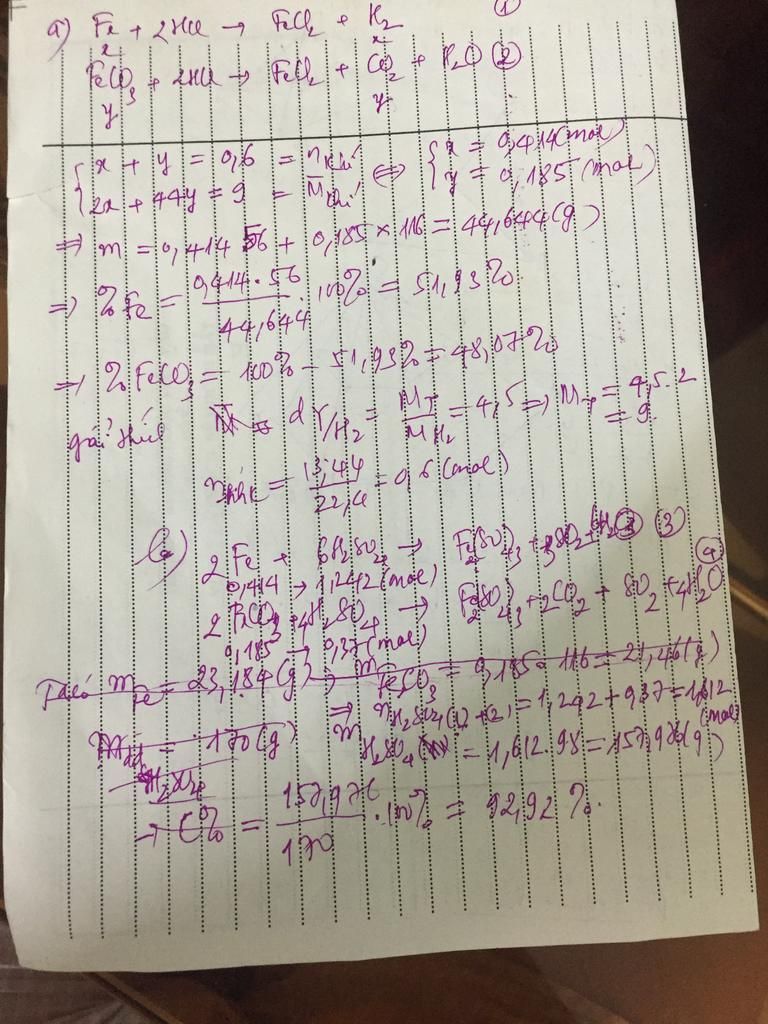 a) Fe + 2HCl → FeCl2 + H2 (1)
x x
FeCO3 + 2HCl → FeCl2 + CO2 + H2O (2)
y y
{ x + y = 0,6 = nkhí ⇔ { x = 0,414 (mol)
2x + 44y = 9 = M̄khí y = 0,185 (mol)
⇒ m = 0,414 56 + 0,185 × 116 = 44,644 (g)
⇒ %Fe = 0,414 . 56 / 44,644 . 100% = 51,93%
⇒ % FeCO3 = 100% - 51,93% = 48,07%
giải thích d Y/H2 = MY / MH2 = 4,5 ⇒ MY = 4,5 . 2
= 9
nkhí = 13,44 / 22,4 = 0,6 (mol)
b) 2Fe + 6H2SO4 → Fe2(SO4)3 + 3SO2 + 6H2O (3)
0,414 → 1,242 (mol) (4)
2 FeCO3 + 4H2SO4 → Fe2(SO4)3 + 2CO2 + SO2 + 4H2O
0,185 → 0,37 (mol)
Ta có mFe = 23,184 (g) ; mFeCO3 = 0,185 . 116 = 21,46 (g)
⇒ nH2SO4 (1) + (2) = 1,242 + 0,37 = 1,612 (mol)
mdd H2SO4 = 170 (g) mH2SO4 = 1,612 . 98 = 157,976 (g)
→ C% = 157,976 / 170 . 100% = 92,92 %.